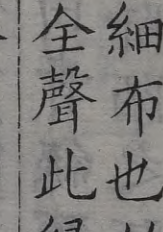 細布也
全聲此